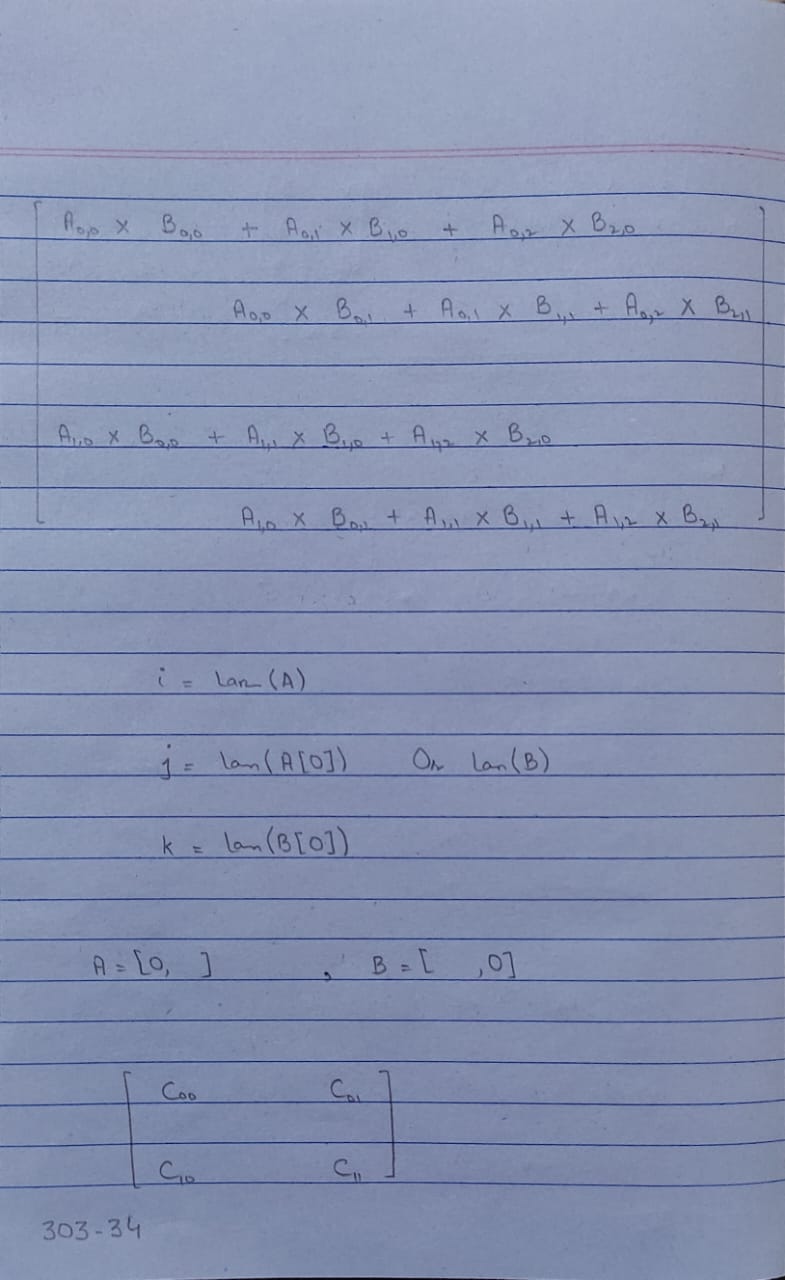 A0,0 × B0,0 + A0,1 × B1,0 + A0,2 × B2,0
A0,0 × B0,1 + A0,1 × B1,1 + A0,2 × B2,1
A1,0 × B0,0 + A1,1 × B1,0 + A1,2 × B2,0
A1,0 × B0,1 + A1,1 × B1,1 + A1,2 × B2,1
i = lan(A)
j = lan(A[0]) Or lan(B)
k = lan(B[0])
A = [0, ] , B = [ ,0]
C00 C01
C10 C11
303-34